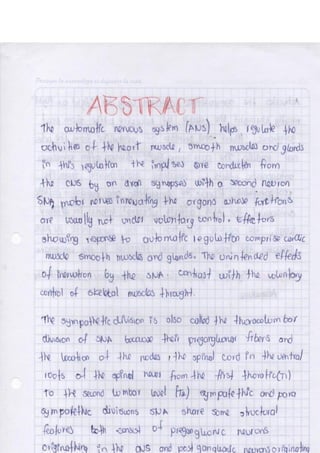 ABSTRACT
The automatic nervous system (ANS) helps regulate the
activities of the heart muscle, smooth muscles and glands
in this regulation the impulses are conducten from
the CNS by an axon synapses with a second neuron
SNA, motor nerves innovating the organs whose functions
are usually not under voluntary control. Effectors
showing response to automatic regulation comprise cardiac
muscle smooth muscles and glands. The unintended effects
of inervation by the SNA. contrast with the voluntary
control of skeletal muscles throught.
The sympathetic division is also called the thoracolumbar
division of SNA because their preganglional fibers and
the location of the nodes, the spinal cord in the ventral
roots of the spinal nerve from the first thoratic (T1)
To the second lumbar level (T2) sympathetic and para
sympathetic divisions SNA share some structural
features both consist of preganglionic neurons
originathing in the CNS and post ganglionic neurons originating